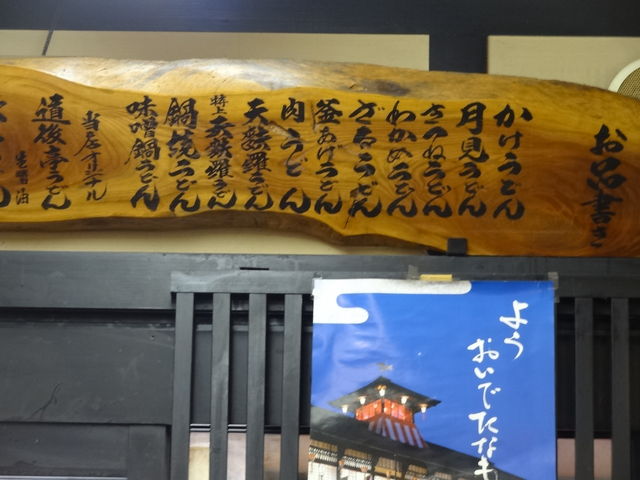 お品書き
かけうどん
月見うどん
きつねうどん
わかめうどん
ざるうどん
釜あげうどん
肉うどん
天麩羅うどん
特上天麩羅うどん
鍋焼うどん
味噌鍋うどん
当店オリヂナル
道後亭うどん
生醤油
よう
おいでたなも